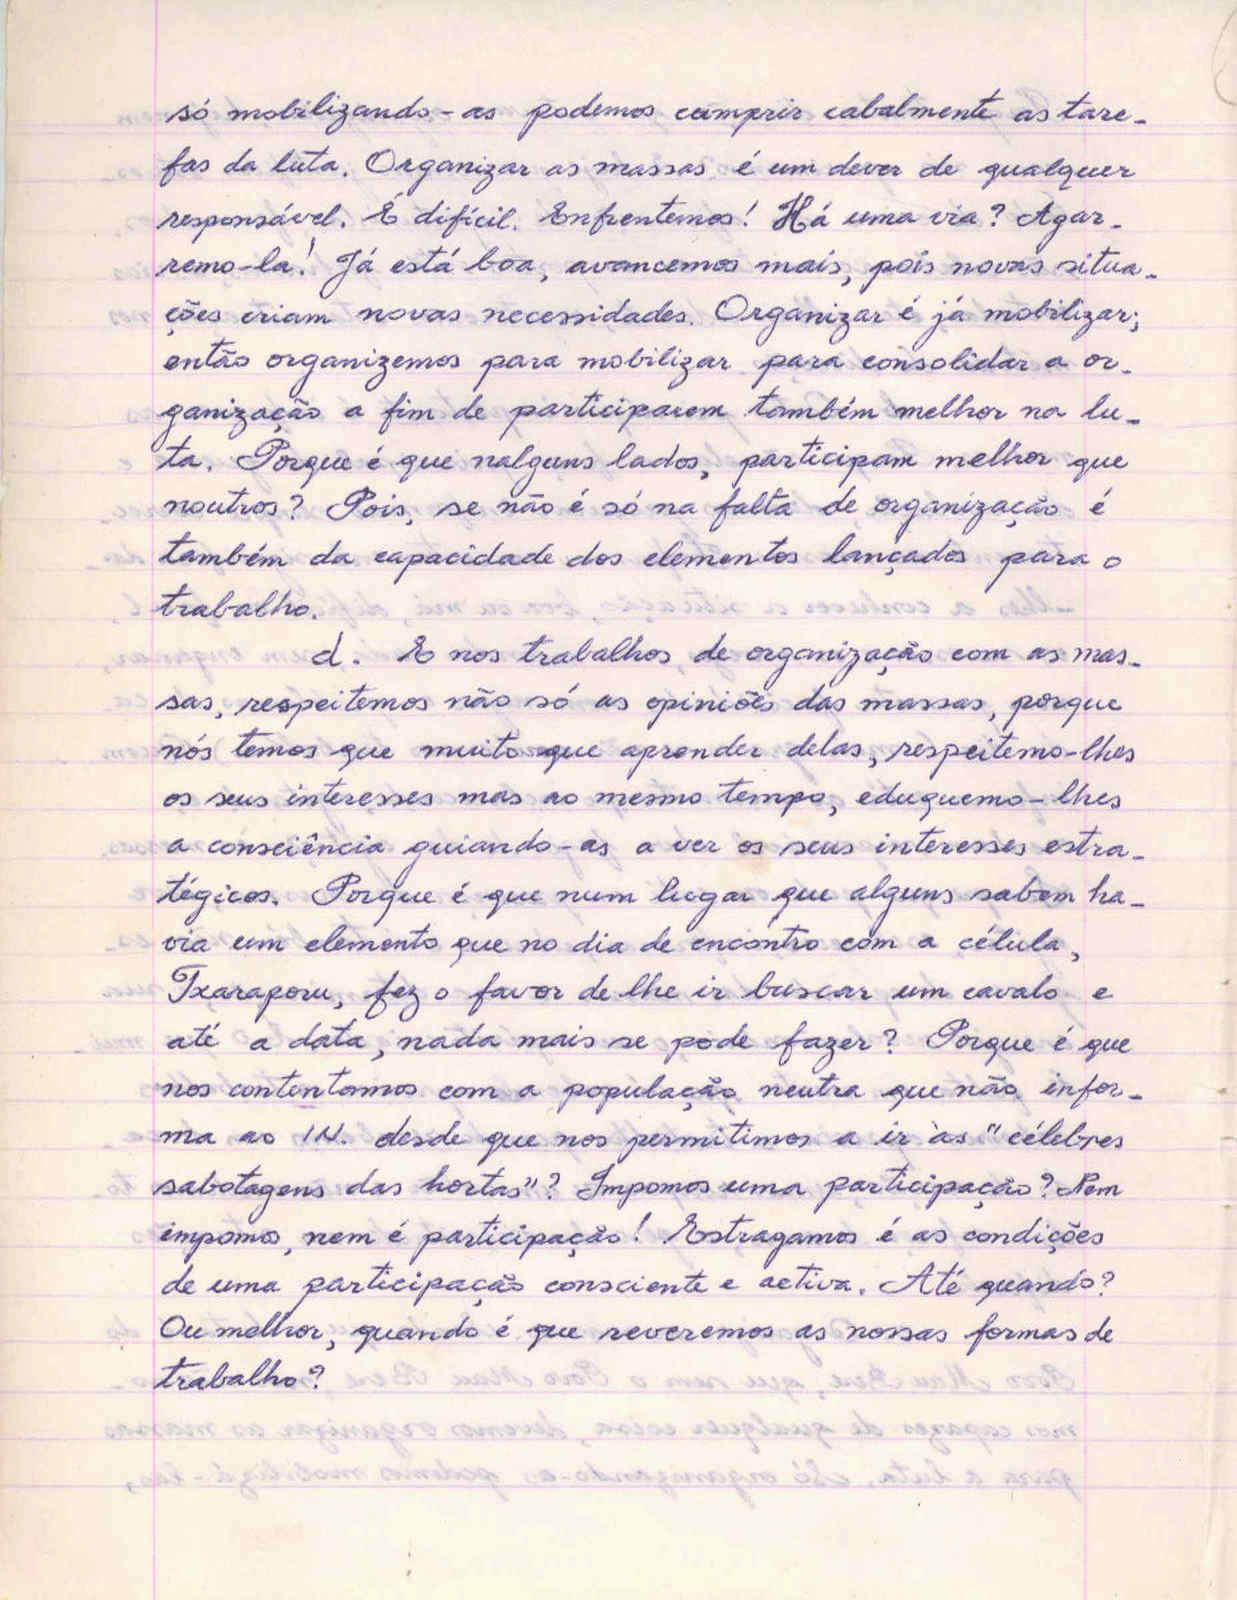 só mobilizando-as podemos cumprir cabalmente as tare-
fas da luta. Organizar as massas é um dever de qualquer
responsável. É difícil. Enfrentemos! Há uma via? Agar-
remo-la! Já está boa, avancemos mais, pois novas situa-
ções criam novas necessidades. Organizar é já mobilizar;
então organizemos para mobilizar para consolidar a or-
ganização a fim de participarem também melhor na lu-
ta. Porque é que nalguns lados, participam melhor que
noutros? Pois, se não é só na falta de organização é
também da capacidade dos elementos lançados para o
trabalho.
d. E nos trabalhos de organização com as mas-
sas, respeitemos não só as opiniões das massas, porque
nós temos que muito que aprender delas, respeitemo-lhes
os seus interesses mas ao mesmo tempo, eduquemo-lhes
a consciência guiando-as a ver os seus interesses estra-
tégicos. Porque é que num lugar que alguns sabem ha-
via um elemento que no dia de encontro com a célula,
Txaraporu, fez o favor de lhe ir buscar um cavalo e
até a data, nada mais se pode fazer? Porque é que
nos contentamos com a população neutra que não infor-
ma ao IN. desde que nos permitimos a ir às "célebres
sabotagens das hortas"? Impomos uma participação? Nem
impomos, nem é participação! Estragamos é as condições
de uma participação consciente e activa. Até quando?
Ou melhor, quando é que reveremos as nossas formas de
trabalho?